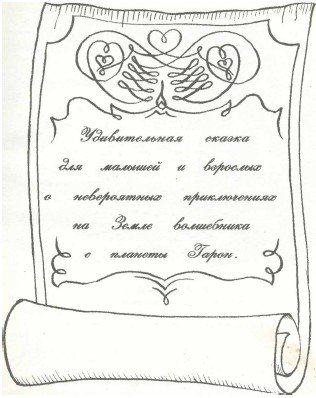 Удивительная сказка
для малышей и взрослых
о невероятных приключениях
на Земле волшебника
с планеты Гарон.